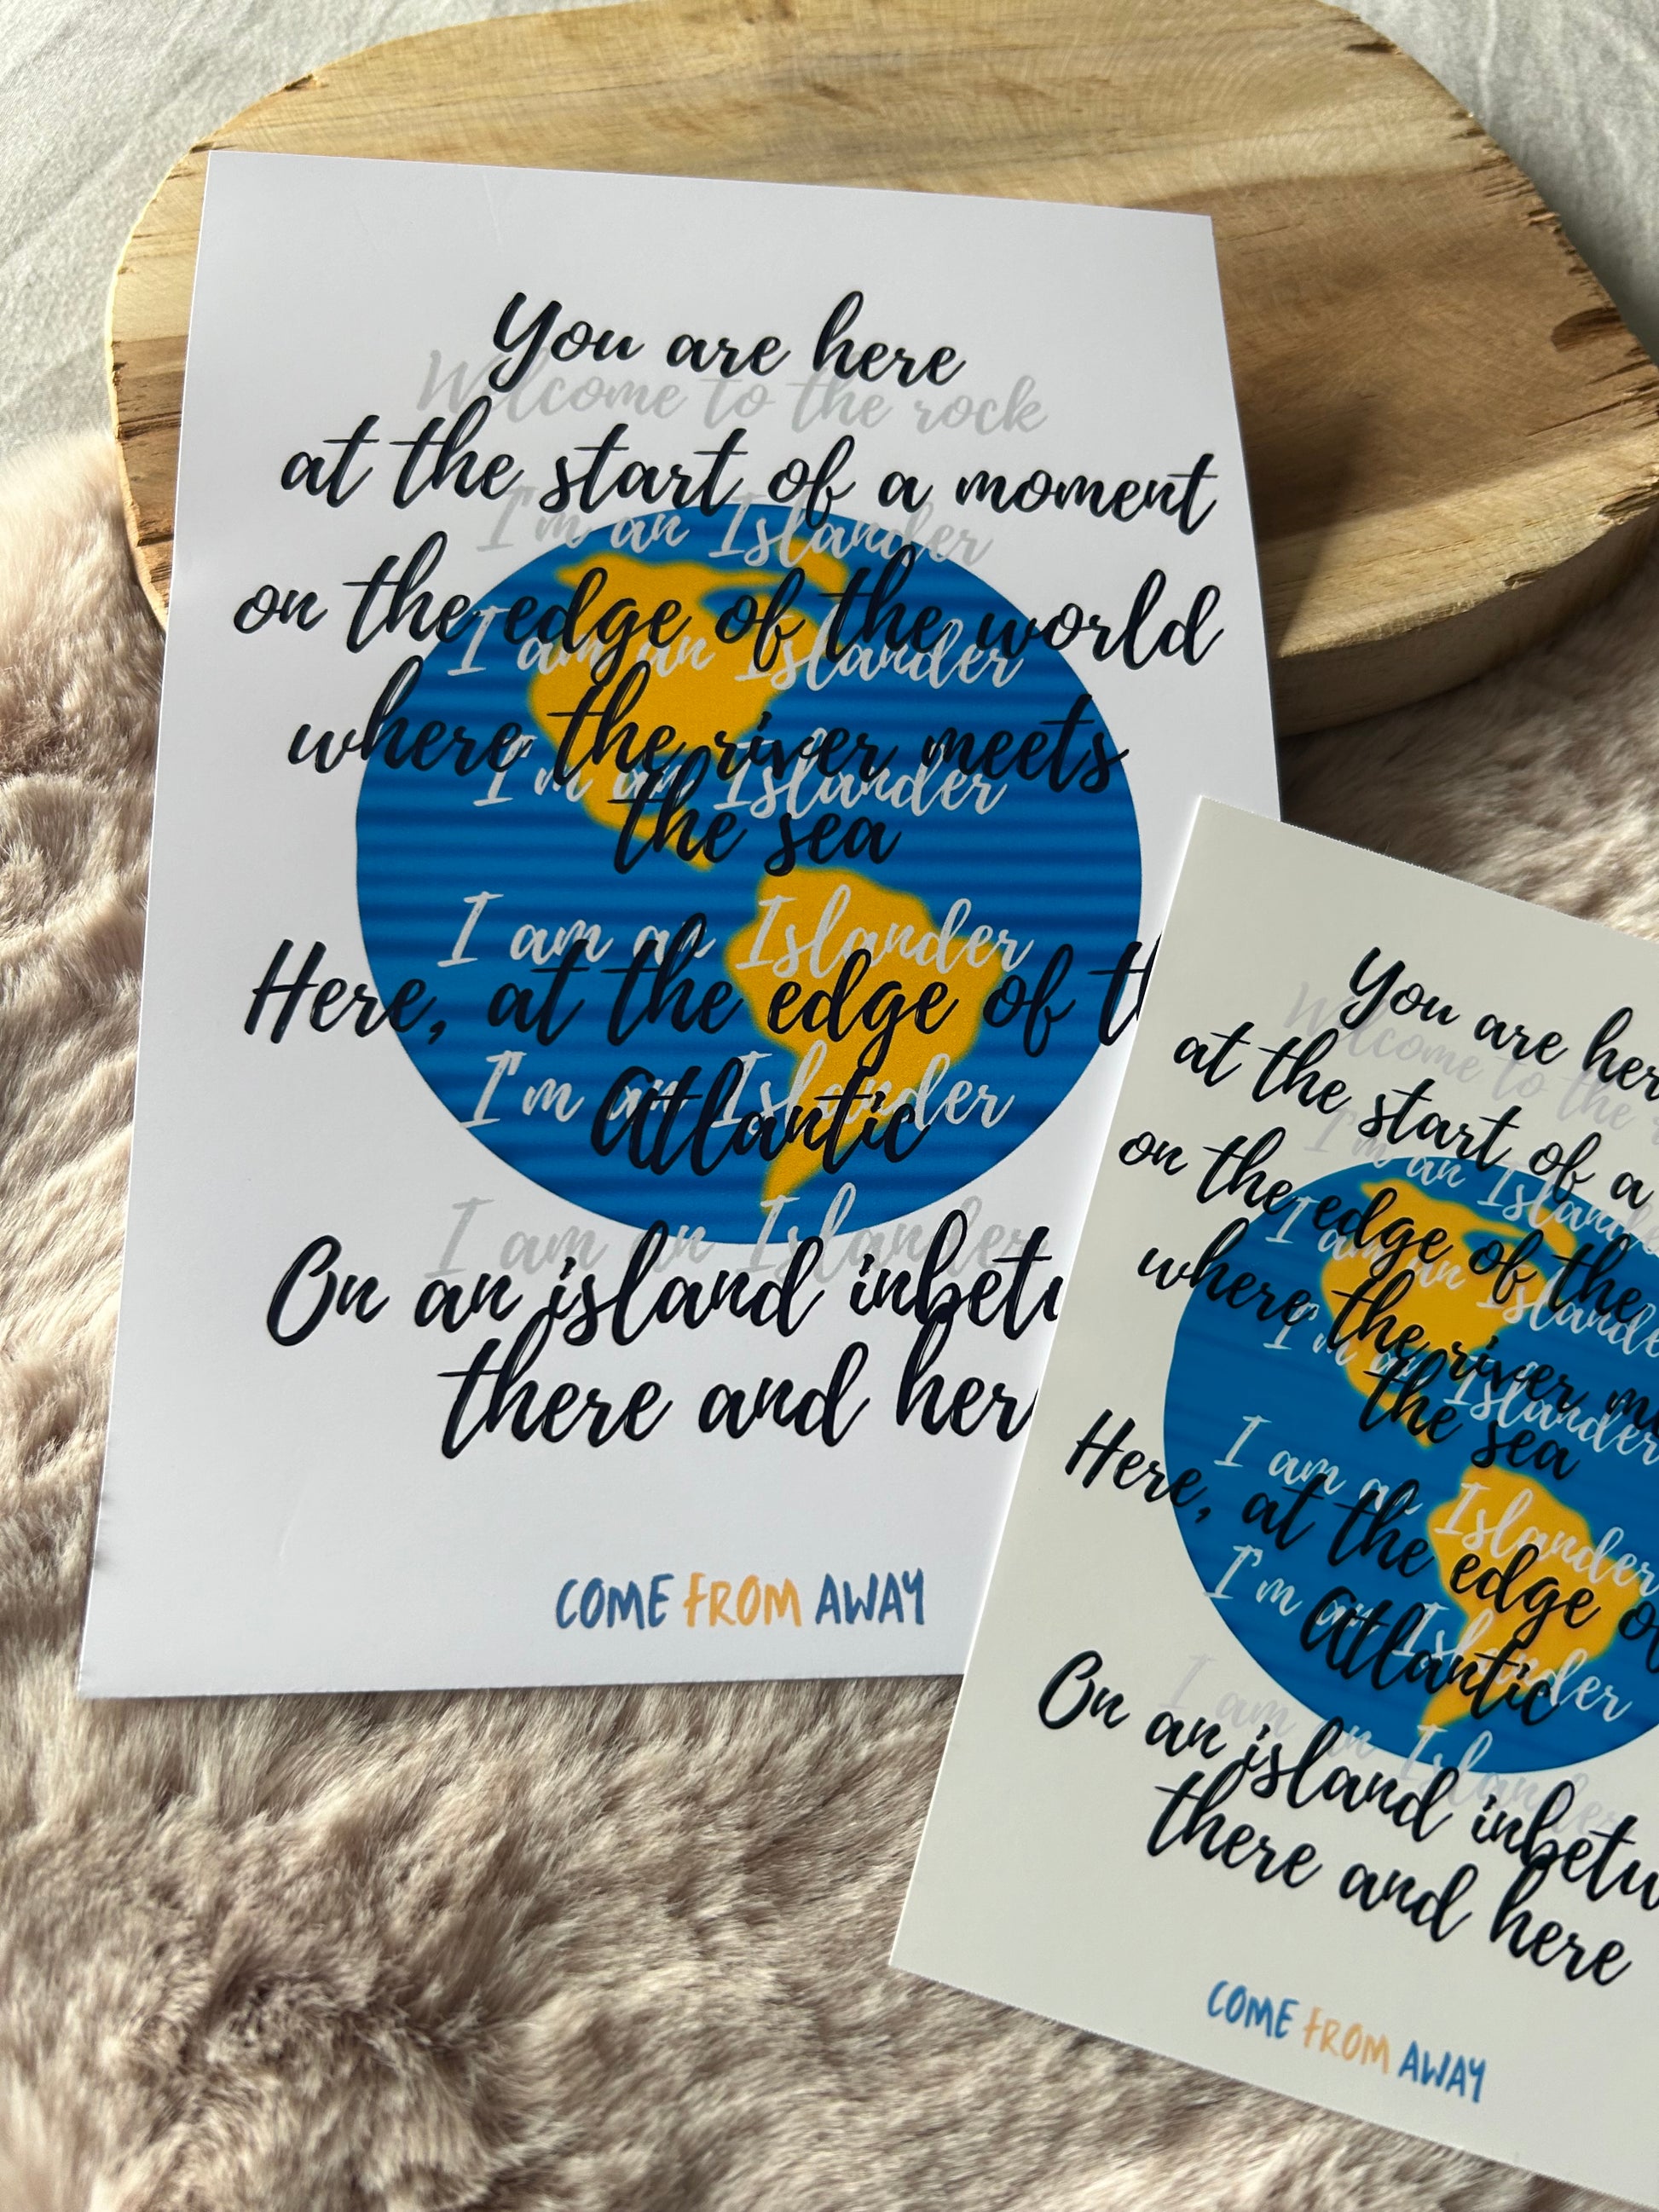 You are here
Welcome to the rock
at the start of a moment
I'm an Islander
on the edge of the world
I am an Islander
where the river meets
I'm an Islander
the sea
I am an Islander
Here, at the edge of th
I'm an Islander
Atlantic
I am an Islander
On an island inbetw
there and her
COME FROM AWAY
You are her
Welcome to the r
at the start of a
I'm an Islande
on the edge of the
I am an Islande
where the river me
I'm an Islander
the sea
I am an Islander
Here, at the edge of
I'm an Islander
Atlantic
I am an Islander
On an island inbetw
there and here
COME FROM AWAY